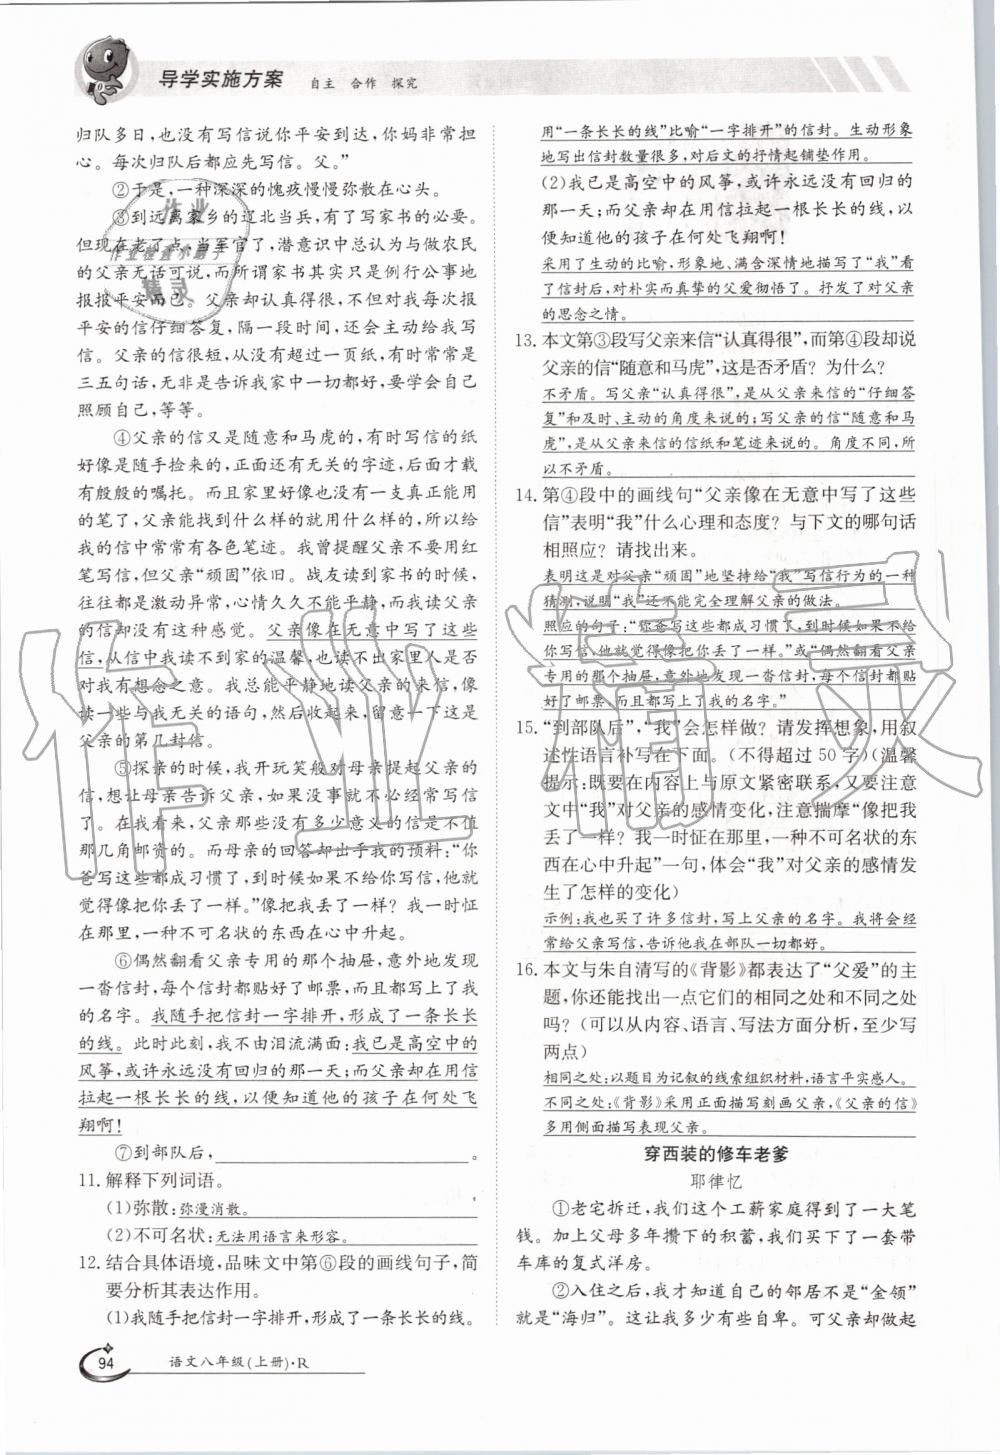 导学实施方案 自主 合作 探究
归队多日，也没有写信说你平安到达，你妈非常担
心。每次归队后都应先写信。父。”
②于是，一种深深的愧疚慢慢弥散在心头。
③到远离家乡的辽北当兵，有了写家书的必要。
但现在老了点，当军官了，潜意识中总认为与做农民
的父亲无话可说，而所谓家书其实只是例行公事地
报报平安而已。父亲却认真得很，不但对我每次报
平安的信仔细答复，隔一段时间，还会主动给我写
信。父亲的信很短，从没有超过一页纸，有时常常是
三五句话，无非是告诉我家中一切都好，要学会自己
照顾自己，等等。
④父亲的信又是随意和马虎的，有时写信的纸
好像是随手捡来的，正面还有无关的字迹，背后却
有殷殷的嘱托。而且家里好像也没有一支真正能用
的笔了，父亲能找到什么样的就用什么样的，所以给
我的信中常常有各色笔迹。我曾提醒父亲不要用红
笔写信，但父亲“顽固”依旧。战友读到家书的时候，
往往都是激动异常，心情久久不能平静，而我读父亲
的信却没有这种感觉。父亲像在无意中写了这些
信，从信中我读不到家的温馨，也读不出家里人是否
对我有想念之意。我总能平静地读父亲的来信，像
读一些与我无关的语句，然后收好，留意一下这是
父亲的第几封信。
⑤探亲的时候，我开玩笑般对母亲提起父亲的
信，想让母亲告诉父亲，如果没事就不必经常写信
了。在我看来，父亲那些没有多少意义的信是不值
那几角邮资的。而母亲的回答却出乎我的预料：“你
爸写这些都成习惯了，到时候如果不给你写信，他就
觉得像把你丢了一样。”像把我丢了一样？我一时怔
在那里，一种不可名状的东西在心中升起。
⑥偶然翻看父亲专用的那个抽屉，意外地发现
一沓信封，每个信封都贴好了邮票，而且都写上了我
的名字。我随手把信封一字排开，形成了一条长长
的线。此时此刻，我不由泪流满面：我已是高空中的
风筝，或许永远没有回归的那一天；而父亲却在用信
拉起一根长长的线，以便知道他的孩子在何处飞
翔啊！
⑦到部队后，。
11. 解释下列词语。
(1)弥散：弥漫消散。
(2)不可名状：无法用语言来形容。
12. 结合具体语境，品味文中第⑥段的画线句子，简
要分析其表达作用。
(1)我随手把信封一字排开，形成了一条长长的线。
94 语文八年级(上册)·R
用“一条长长的线”比喻“一字排开”的信封。生动形象
地写出信封数量很多，对后文的抒情起铺垫作用。
(2)我已是高空中的风筝，或许永远没有回归的
那一天；而父亲却在用信拉起一根长长的线，以
便知道他的孩子在何处飞翔啊！
采用了生动的比喻，形象地、满含深情地描写了“我”看
了信封后，对朴实而真挚的父爱彻悟了。抒发了对父亲
的思念之情。
13. 本文第③段写父亲来信“认真得很”，而第④段却说
父亲的信“随意和马虎”，这是否矛盾？为什么？
不矛盾。写父亲“认真得很”，是从父亲来信的“仔细答
复”和及时、主动的角度来说的；写父亲的信“随意和马
虎”，是从父亲来信的信纸和笔迹来说的。角度不同，所
以不矛盾。
14. 第④段中的画线句“父亲像在无意中写了这些
信”表明“我”什么心理和态度？与下文的哪句话
相照应？请找出来。
表明这是对父亲“顽固”地坚持给“我”写信行为的一种
猜测，说明“我”还不能完全理解父亲的做法。
照应的句子：“你爸写这些都成习惯了，到时候如果不给
你写信，他就觉得像把你丢了一样。”或“偶然翻看父亲
专用的那个抽屉，意外地发现一沓信封，每个信封都贴
好了邮票，而且都写上了我的名字。”
15. “到部队后”，“我”会怎样做？请发挥想象，用叙
述性语言补写在下面。(不得超过50字)(温馨
提示：既要在内容上与原文紧密联系，又要注意
文中“我”对父亲的感情变化，注意揣摩“像把我
丢了一样？我一时怔在那里，一种不可名状的东
西在心中升起”一句，体会“我”对父亲的感情发
生了怎样的变化)
示例：我也买了许多信封，写上父亲的名字。我将会经
常给父亲写信，告诉他我在部队一切都好。
16. 本文与朱自清写的《背影》都表达了“父爱”的主
题，你还能找出一点它们的相同之处和不同之处
吗？(可以从内容、语言、写法方面分析，至少写
两点)
相同之处：以题目为记叙的线索组织材料，语言平实感人。
不同之处：《背影》采用正面描写刻画父亲，《父亲的信》
多用侧面描写表现父亲。
穿西装的修车老爹
耶律忆
①老宅拆迁，我们这个工薪家庭得到了一大笔
钱。加上父母多年攒下的积蓄，我们买下了一套带
车库的复式洋房。
②入住之后，我才知道自己的邻居不是“金领”
就是“海归”。这让我多少有些自卑。可父亲却做起
作业精灵
作业
作业检查小助手
精灵